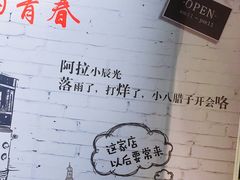 的青春
OPEN
阿拉小辰光
落雨了，打烊了，小八腊子开会咯
这家店
以后要常来